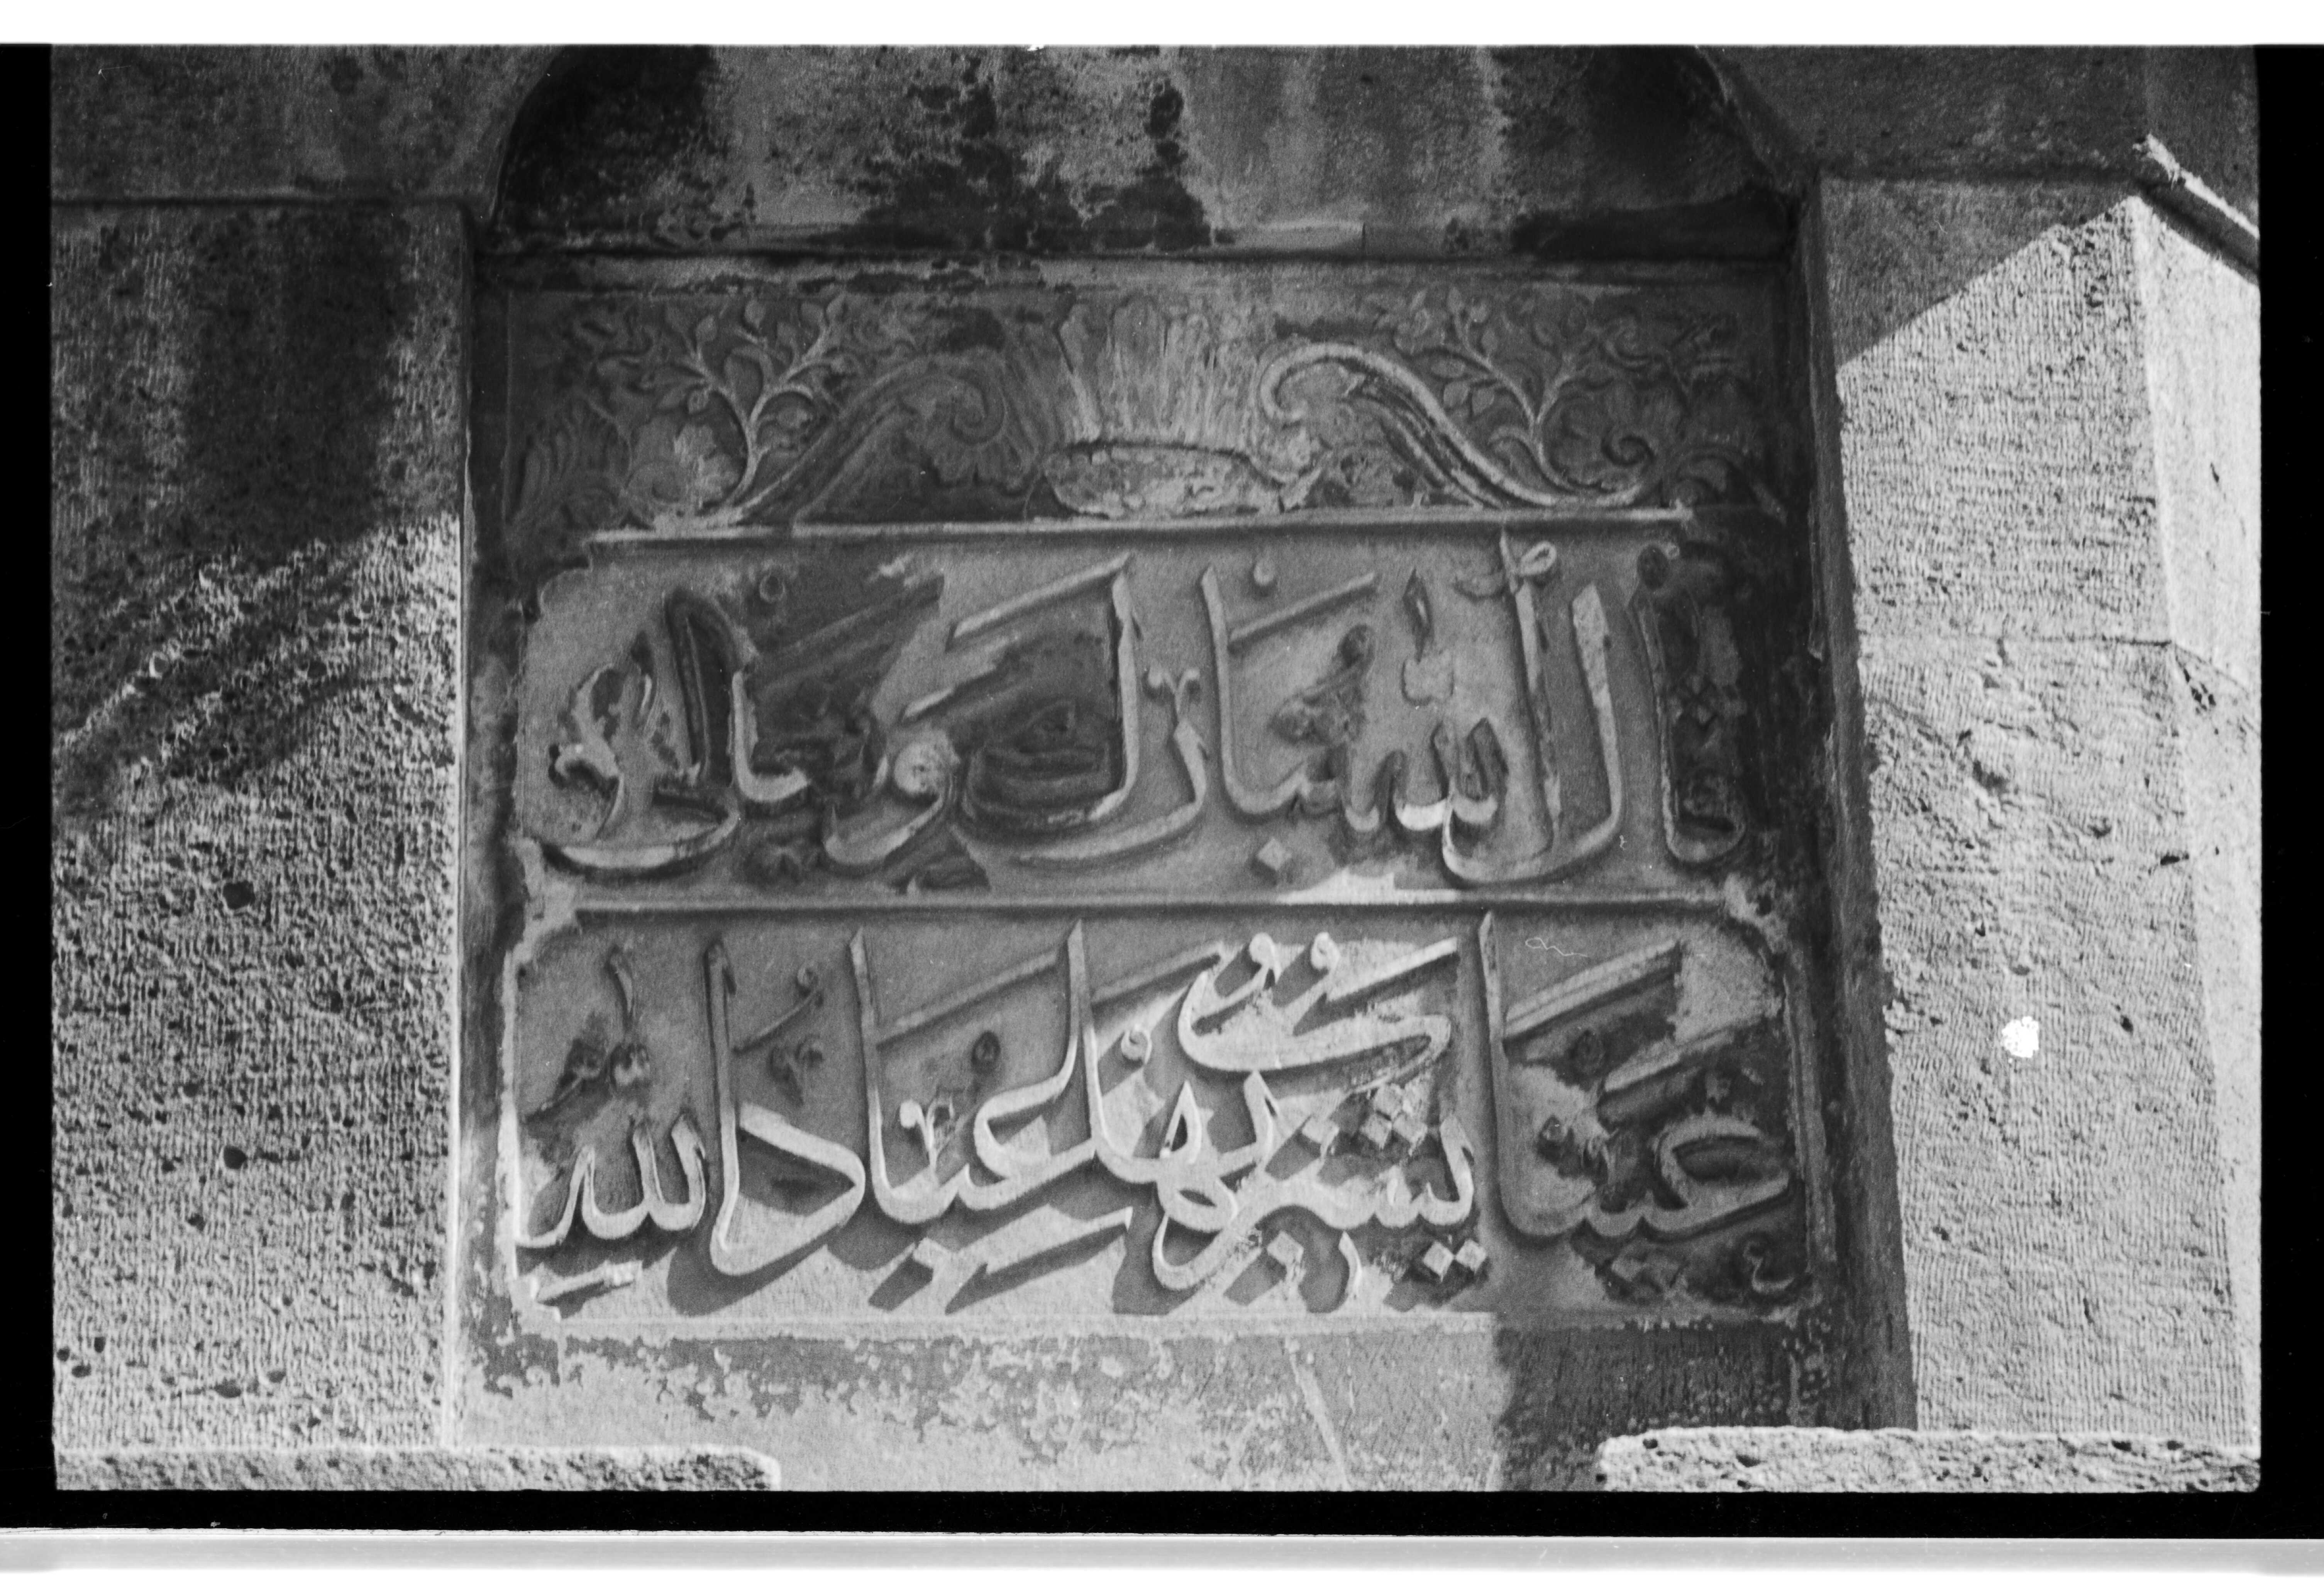 قال الله تبارك وتعالى
عينا يشرب بها عباد الله